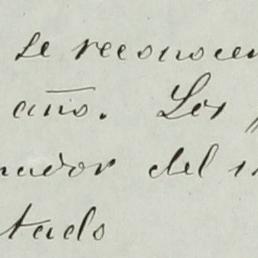 se reconocen
año. Los
nador del
tado